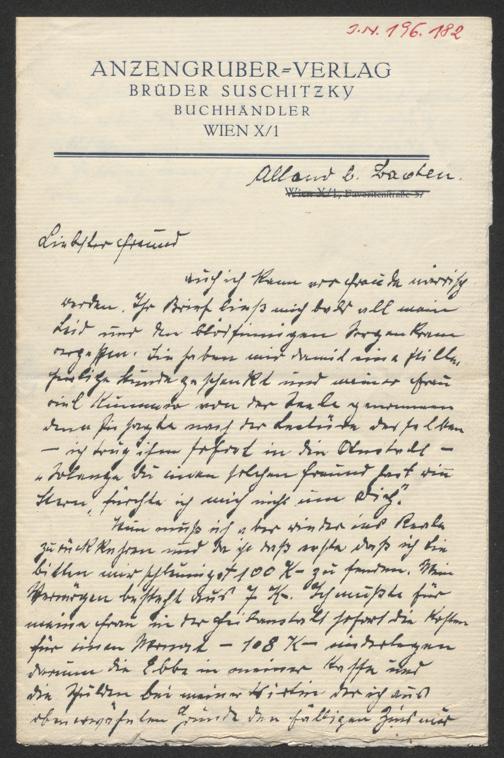 J.N. 196.182
ANZENGRUBER=VERLAG
BRÜDER SUSCHITZKY
BUCHHÄNDLER
WIEN X/1
Alland b. Baden.
Wien X/1, Favoritenstraße 57
Liebster Freund
auch ich kann vor Freude närrisch
werden. Ihr Brief ließ mich bald all mein
Leid und den blödsinnigen Sorgenkram
vergessen. Sie haben mir damit eine stille,
selige Stunde geschenkt und meiner Frau
viel Kummer von der Seele genommen
denn sie sagte nach der Lektüre desselben
– ich trug ihn sofort in die Anstalt –
„Solange Du einen solchen Freund hast wie
Stern, fürchte ich mich nicht um Dich".
Nun muß ich aber wieder ins Reale
zurückkehren und da ist das erste daß ich Sie
bitten mir schleunigst 100 K– zu senden. Mein
Vermögen besteht aus 7 K–. Ich mußte für
meine Frau in der Heilanstalt sofort die Kosten
für einen Monat – 108 K– niederlegen
darum die Ebbe in meiner Kasse und
die Schulden bei meiner Wirtin der ich aus
oben erwähnten Gründe den fälligen Zins nur